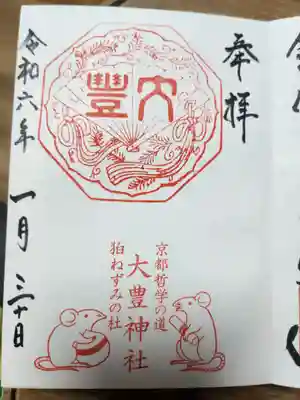 奉拝
大豊
京都哲学の道
大豊神社
狛ねずみの社
令和六年 一月 三十日